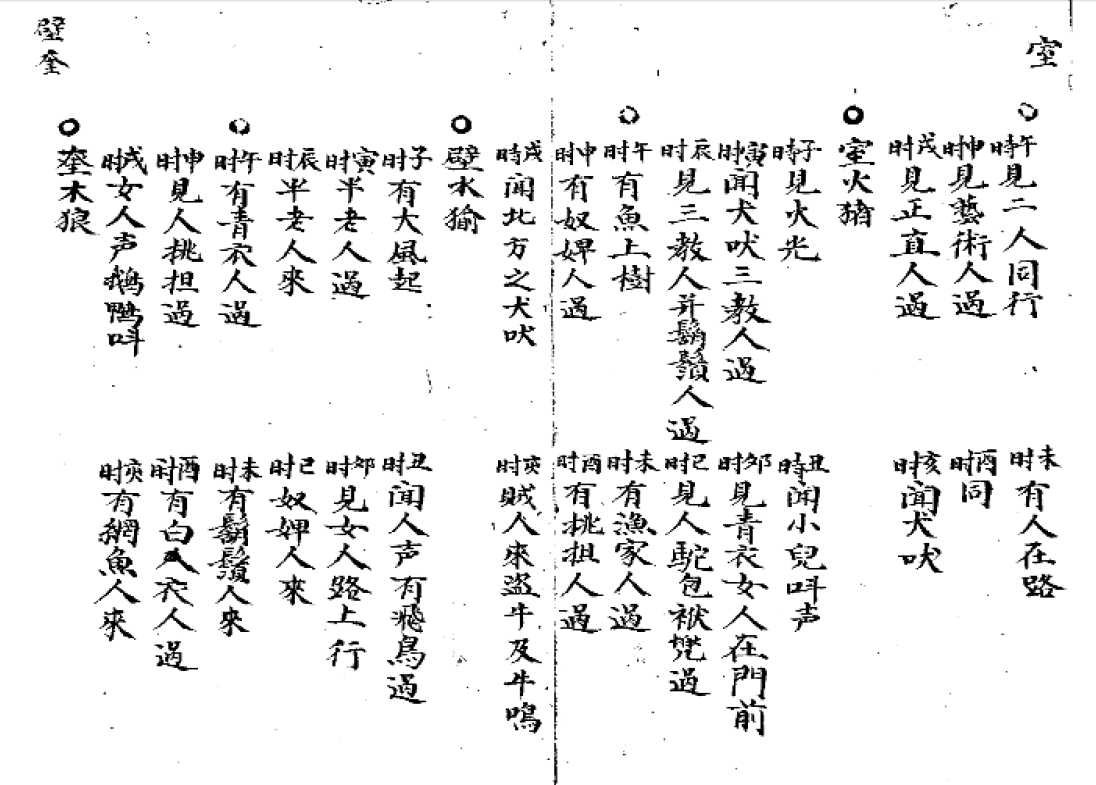 室
午時見二人同行
未时有人在路
申时見藝術人過
酉时同
戌时見正直人過
亥时闻犬吠
室火猪
子時見火光
丑時闻小兒呌声
寅时闻犬吠三教人過
卯时見青衣女人在門前
辰时見三教人并鬍鬚人過
巳时見人駝包袱過
午时有魚上樹
未时有漁家人過
申时有奴婢人過
酉时有挑担人過
戌時闻北方之犬吠
亥时賊人來盜牛及牛鳴
壁水㺄
子时有大風起
丑时闻人声有飛鳥過
寅时半老人過
卯时見女人路上行
辰时半老人來
巳时奴婢人來
午时有青衣人過
未时有鬍鬚人來
申时見人挑担過
酉时有白衣人過
戌时女人声鵝鴨呌
亥时有網魚人來
奎木狼
壁奎